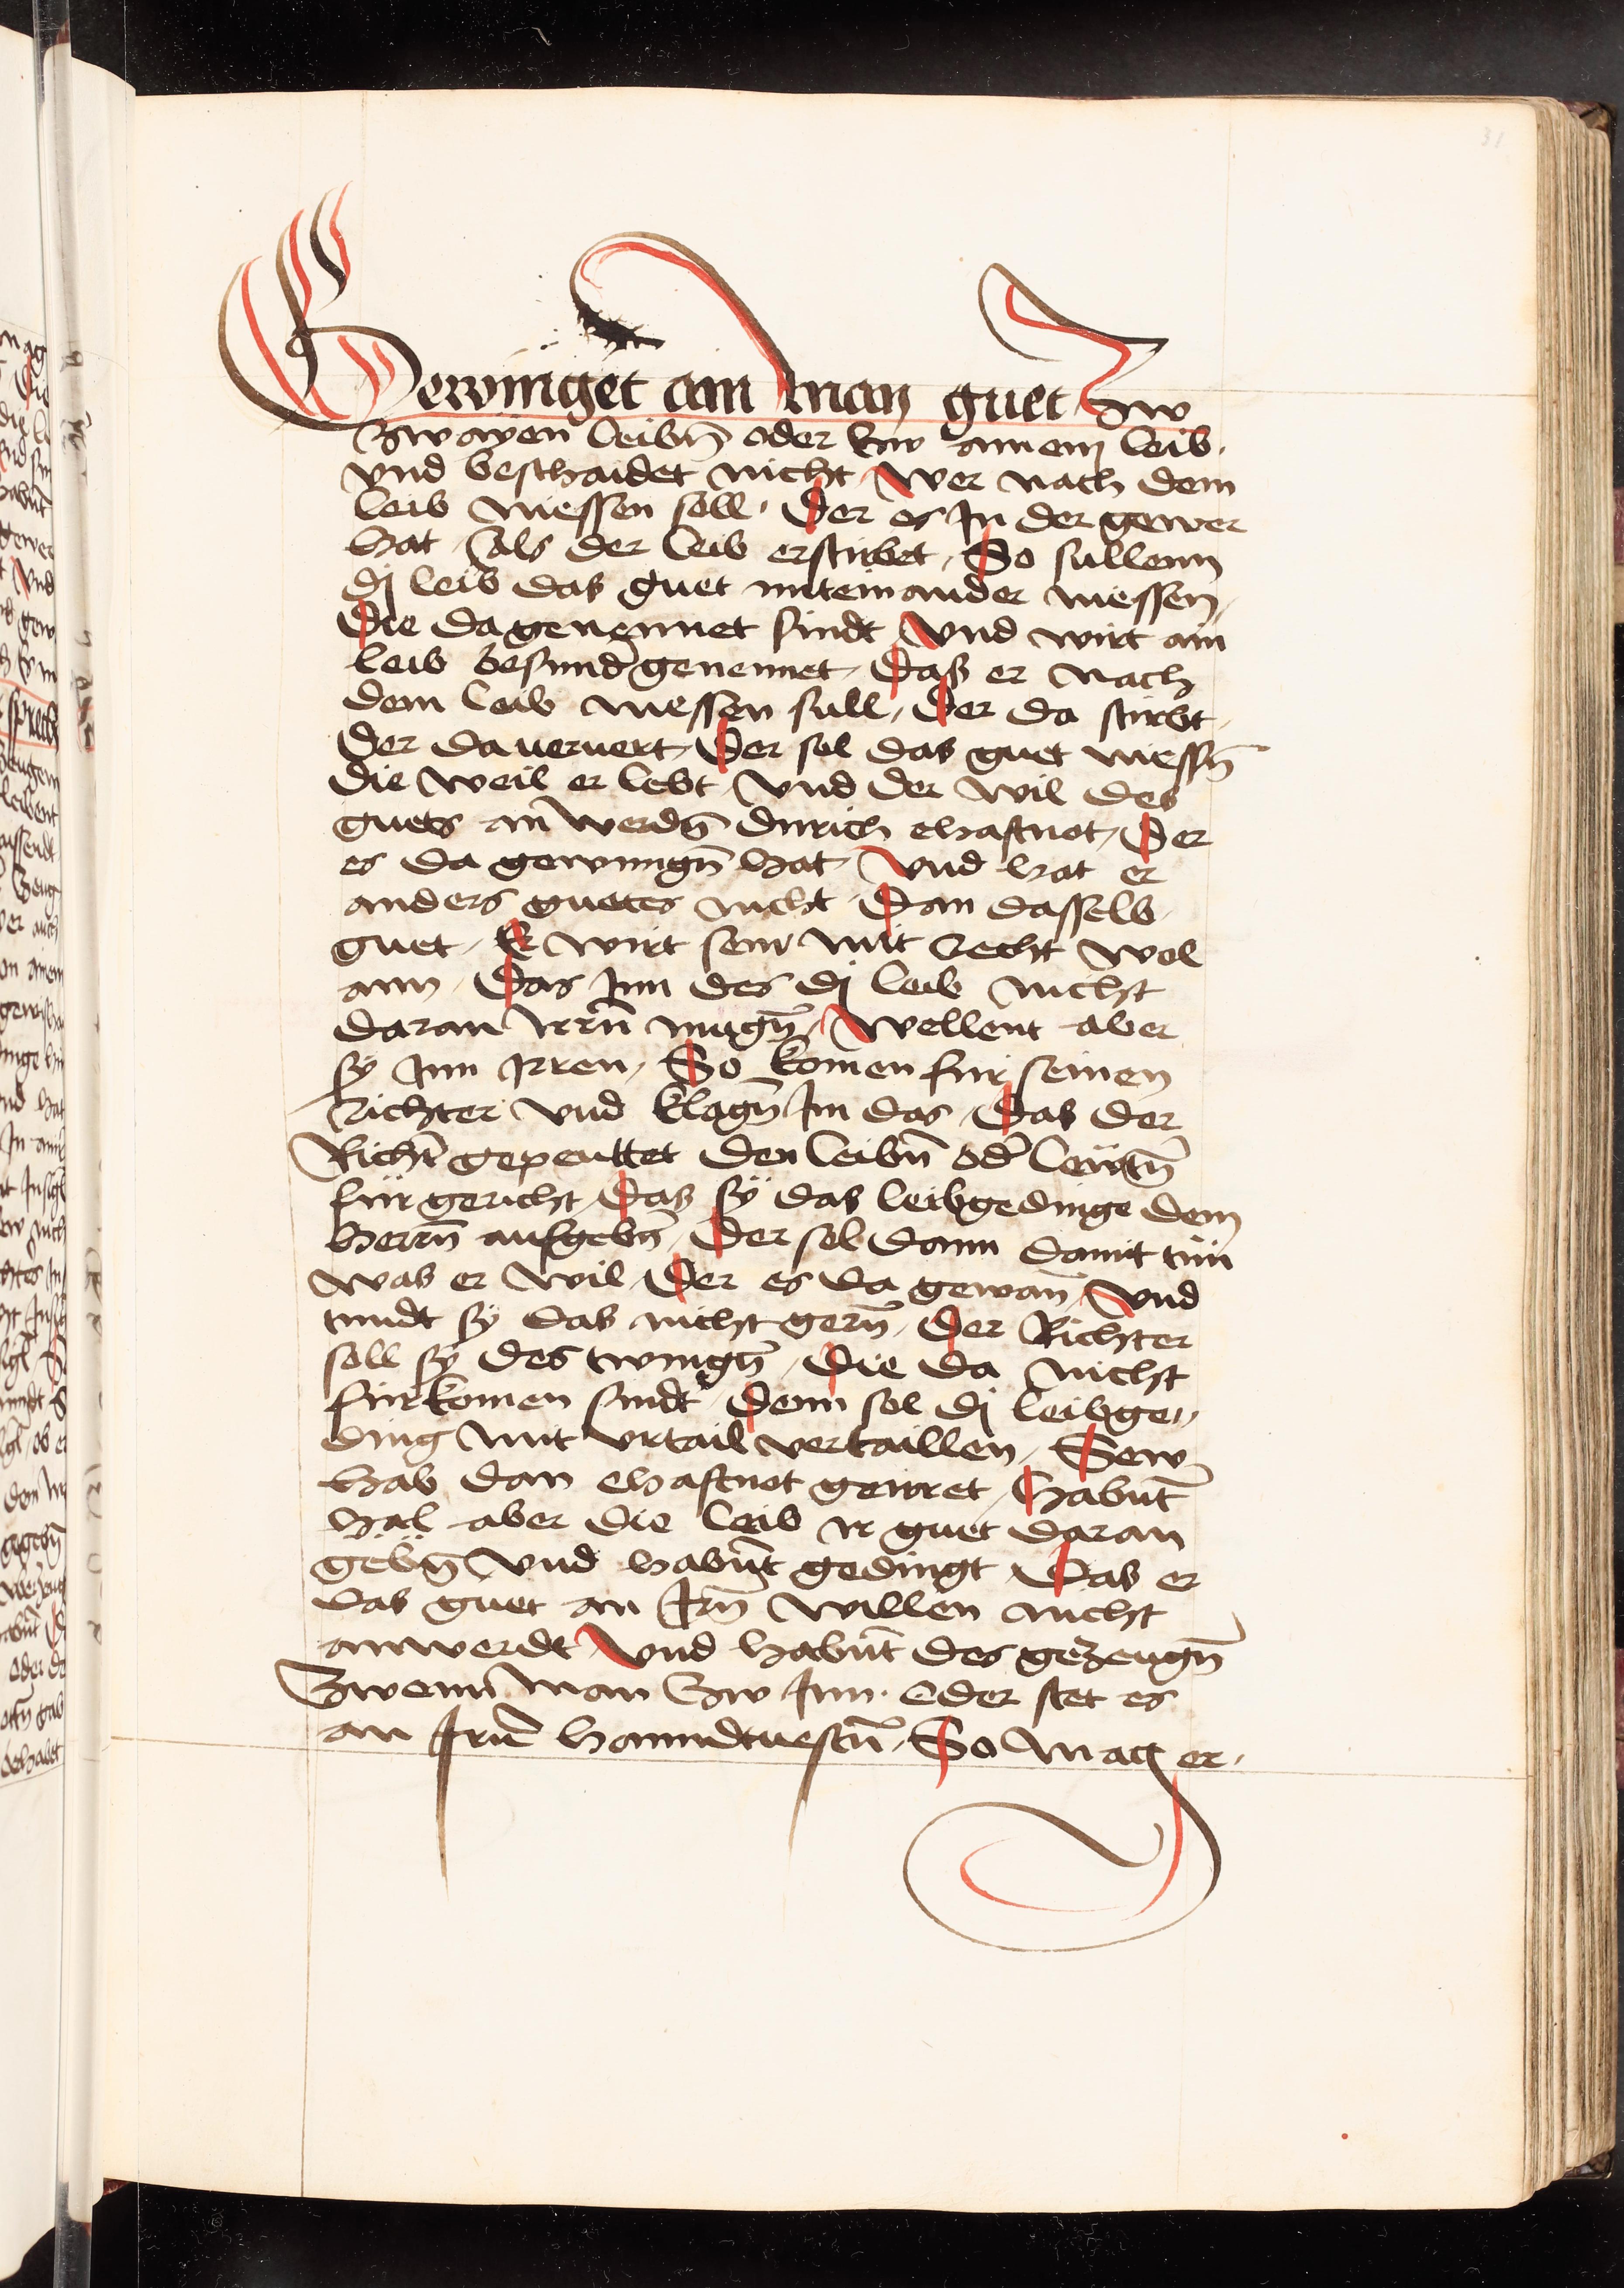 31
Gewinnget ain man guet Zw
Zwayen leibñ oder Zw ainem leib.
vnd beschaidet nicht wer nach dem
leib niessen soll. Der es In der gewer
hat / als der leib erstirbet / So sullenn
dj leib das guet miteinander niessen /
Die da genennet sindt / Vnd wirt ain
leib besunder genennet / Daß er nach
dem leib niessen sull / Der da stirbt /
Der da ververt / Der sol das guet niessñ
die weil er lebt / vnd der wil des
guets an werdñ durich ehaftnot / Der
es da gewungñ hat / Vnd hat er
anders guetes nicht / Dan dasselb
guet / Er wirt sein mit recht wol
ann / Das Inn des dj leib nicht
daran irrñ mugñ / Wellent aber
sÿ Inn Irren / So komen fur seinen
Richter vnd klagñ Im das / Das der
Richt̄ gepeuttet den leibñ od̄ leuttñ
fur gericht / Das sÿ das leibgedinge dem
herrñ aufgebñ / Der sol dann damit tun
was er wil / Der es da gewan / Vnd
tundt sÿ das nicht gerñ / Der Richter
soll sÿ des twingñ / Die da nicht
furkomen sindt / Denn sol dj leibge„
ding mit vrtail vertaillen / Sew
hab dan ehaftnot geirret / Habnt
hal aber die leib ir guet daran
gebñ vnd habñt gedingt / Das er
das guet an Irñ willen nicht
anwerdt / Vnd habñt des gezeugñ
Zwenn man Zw Inn. Oder stet es
an Irñ hanndtuestñ / So mag er.